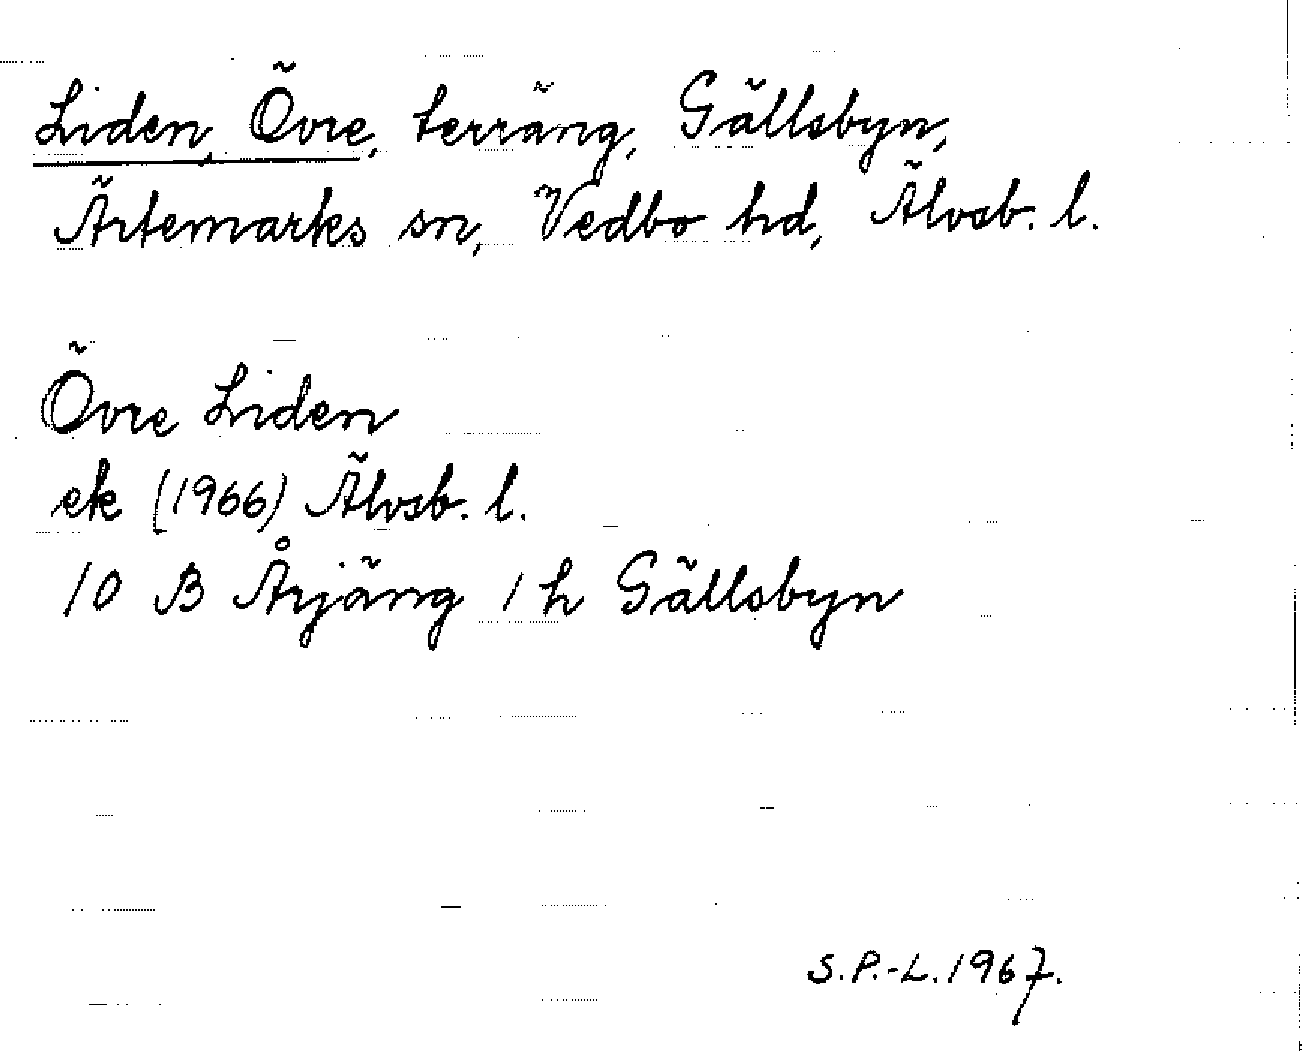 Liden, Övre, terräng, Gällsbyn,
Ärtemarks sn, Vedbo hd, Älvsb. l.
Övre Liden
ek (1966) Älvsb. l.
10 B Årjäng 1 h Gällsbyn
S.P.-L. 1967.